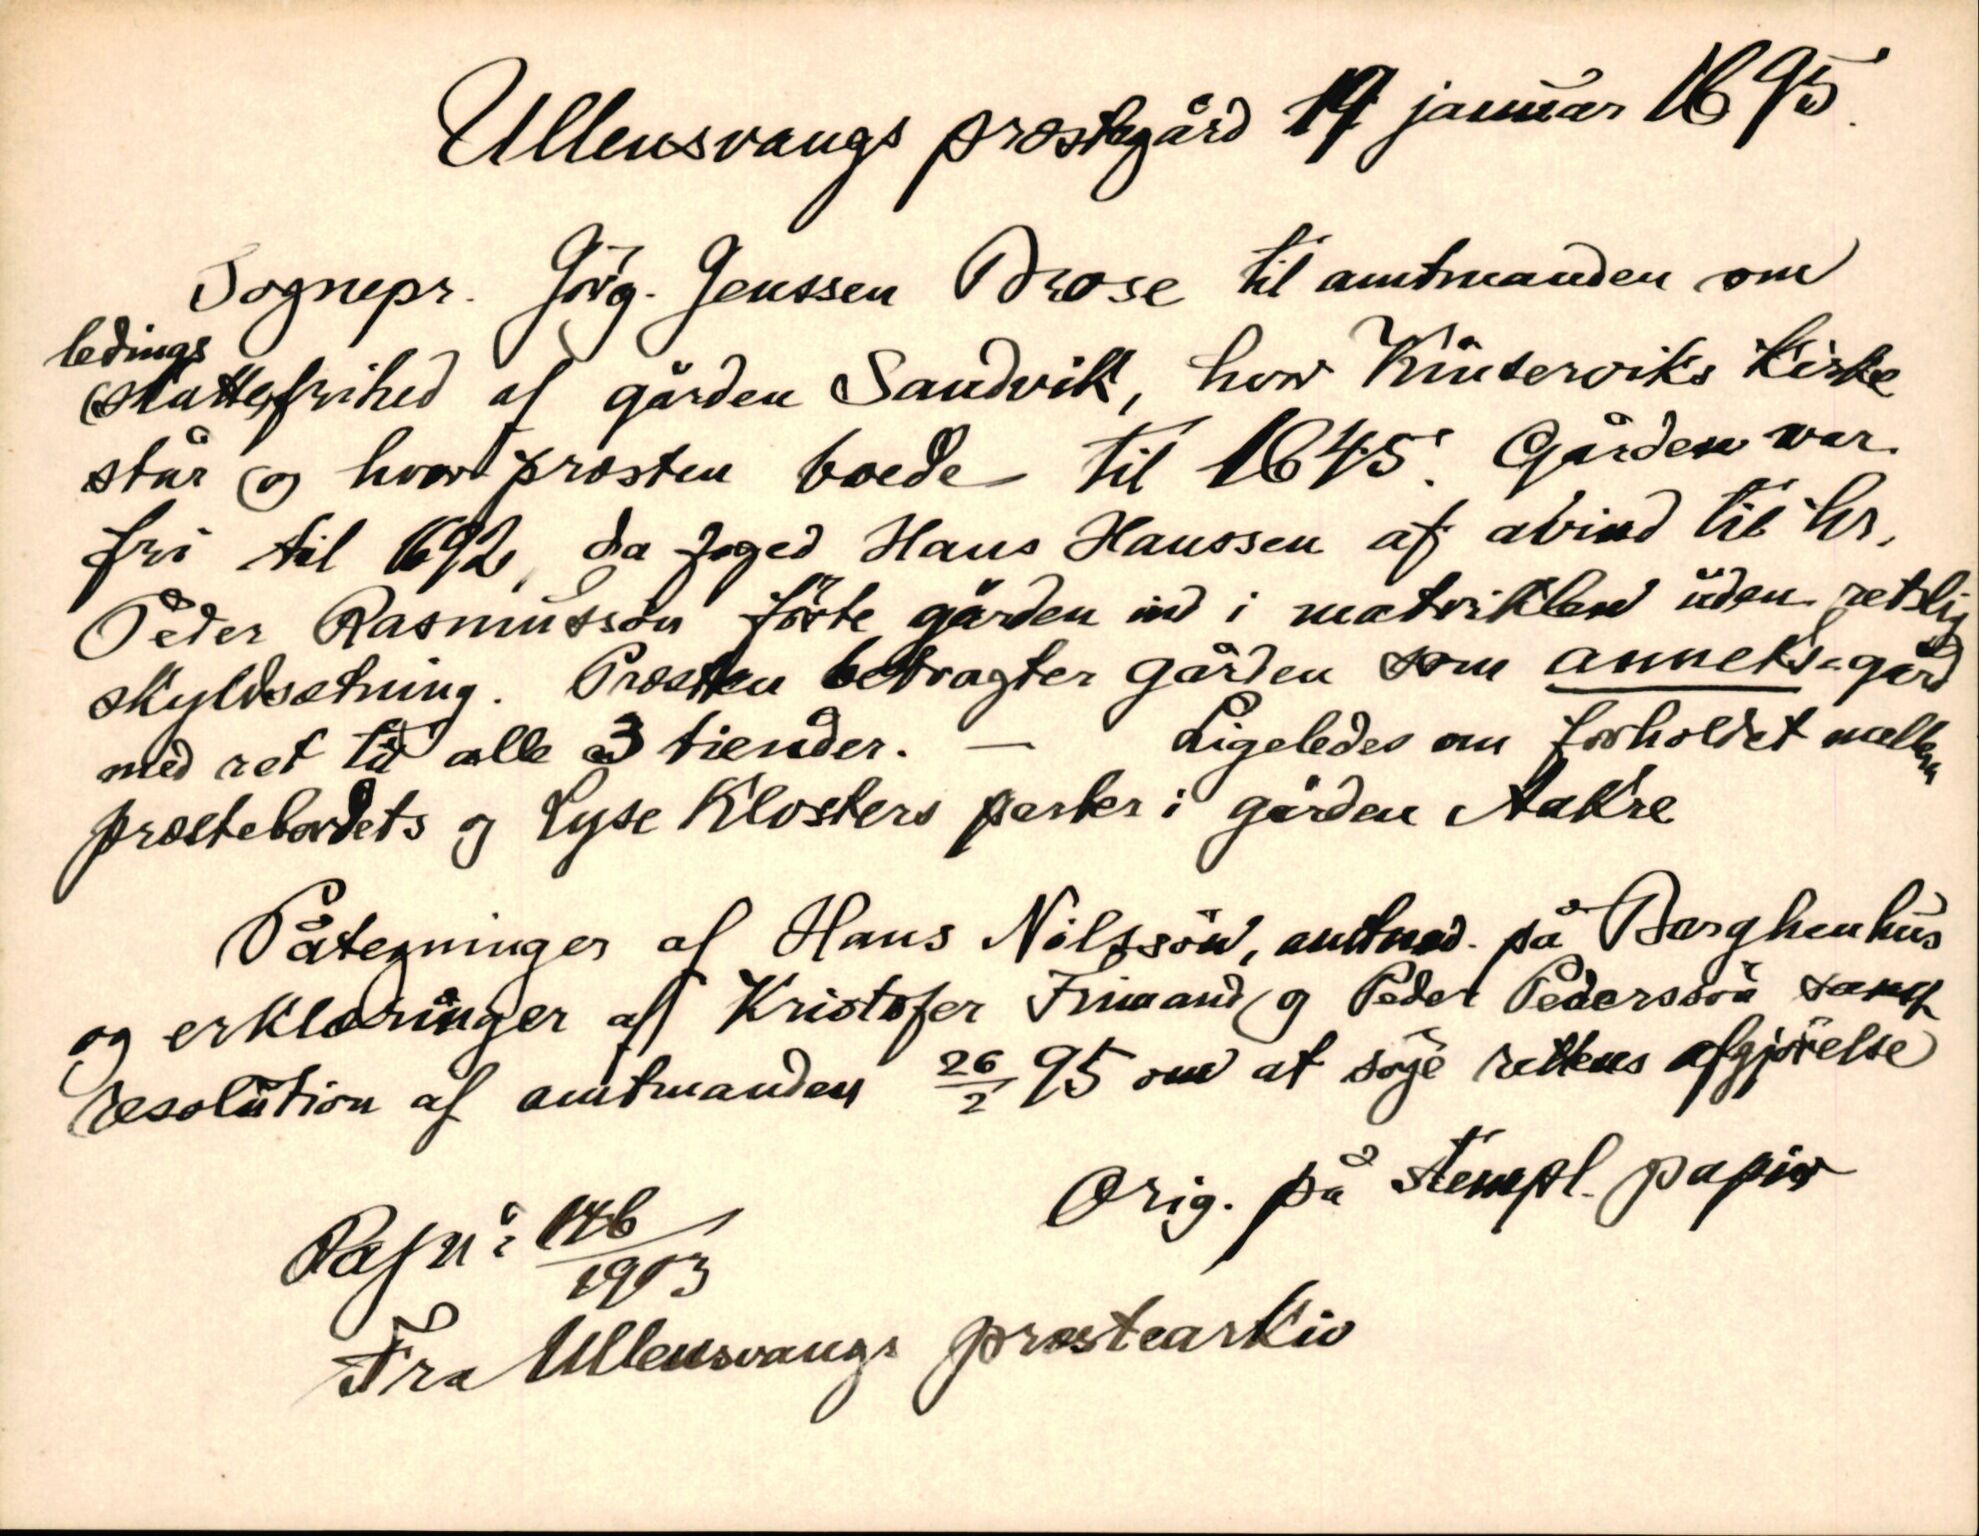 Ullensvangs præstegård 19 januar 1695.
Sognepr. Jörg. Jenssen Brose til amtmanden om
ledings
(skatte)frihed af gården Sandvik, hvor Kinserviks kirke
står og hvor præsten boede til 1645. Gården var
fri til 1692, da foged Hans Hanssen af avind til hr.
Peder Rasmussön förte gården ind i matriklen uden retslig
skyldsætning. Præsten betragter gården som anneks-gård
med ret til alle 3 tiender. — Ligeledes om forholdet mellem
præstebordets og Lyse Klosters parter i gården Aakre
Påtegninger af Hans Nilssön, amtmd. på Berghenhus
og erklæringer af Kristofer Frimand og Peder Pederssön samt
resolution af amtmanden 26/2 95 om at söge rettens afgjörelse
Orig. på stempl. papir
Pafn: 146/1903
Fra Ullensvangs præstearkiv